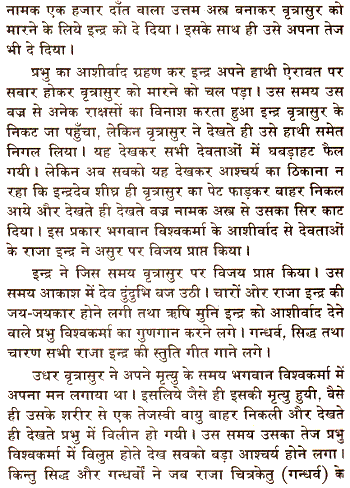 नामक एक हजार दाँत वाला उत्तम अस्त्र बनाकर वृत्रासुर को
मारने के लिए इन्द्र को दे दिया। इसके साथ ही उसे अपना तेज
भी दे दिया।
प्रभु का आशीर्वाद ग्रहण कर इन्द्र अपने हाथी ऐरावत पर
सवार होकर वृत्रासुर को मारने को चल पड़ा। उस समय उस
वज्र से अनेक राक्षसों का विनाश करता हुआ इन्द्र वृत्रासुर के
निकट जा पहुँचा, लेकिन वृत्रासुर ने देखते ही उसे हाथी समेत
निगल लिया। यह देखकर सभी देवताओं में घबड़ाहट फैल
गयी। लेकिन अब सबको यह देखकर आश्चर्य का ठिकाना न
रहा कि इन्द्रदेव शीघ्र ही वृत्रासुर का पेट फाड़कर बाहर निकल
आये और देखते ही देखते वज्र नामक अस्त्र से उसका सिर काट
दिया। इस प्रकार भगवान विश्वकर्मा के आशीर्वाद से देवताओं
के राजा इन्द्र ने असुर पर विजय प्राप्त किया।
इन्द्र ने जिस समय वृत्रासुर पर विजय प्राप्त किया। उस
समय आकाश में देव दुंदुभि बज उठी। चारों ओर राजा इन्द्र की
जय-जयकार होने लगी तथा ऋषि मुनि इन्द्र को आशीर्वाद देने
वाले प्रभु विश्वकर्मा का गुणगान करने लगे। गन्धर्व, सिद्ध तथा
चारण सभी राजा इन्द्र की स्तुति गीत गाने लगे।
उधर वृत्रासुर ने अपने मृत्यु के समय भगवान विश्वकर्मा में
अपना मन लगाया था। इसलिये जैसे ही इसकी मृत्यु हुयी, वैसे
ही उसके शरीर से एक तेजस्वी वायु बाहर निकली और देखते
ही देखते प्रभु में विलीन हो गयी। उस समय उसका तेज प्रभु
विश्वकर्मा में विलुप्त होते देख सबको बड़ा आश्चर्य होने लगा।
किन्तु सिद्ध और गन्धर्वों ने जब राजा चित्रकेतु (गन्धर्व) के